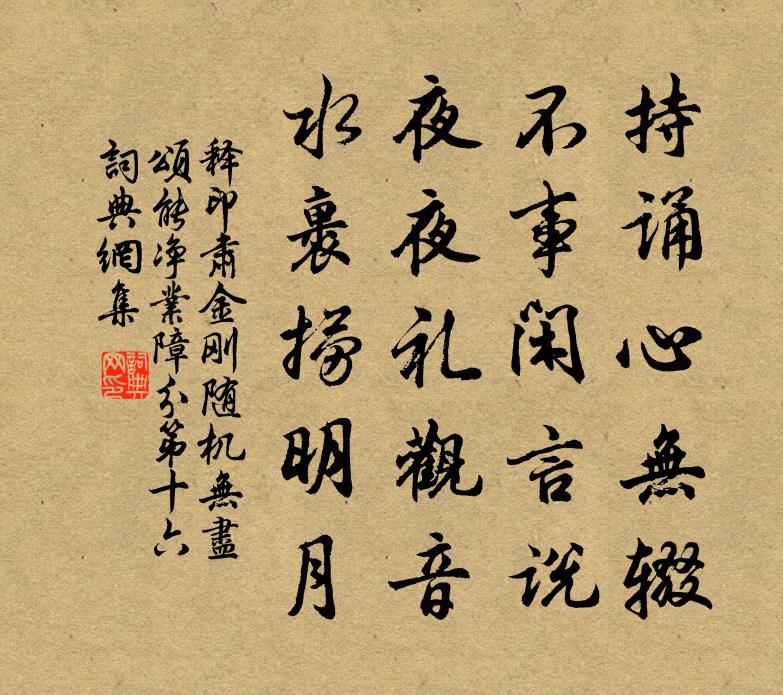 持诵心無辍
不事闲言说
夜夜礼觀音
水裏捞明月
释印肃金刚随机無盡
頌能净業障分第十六
詞典網集
詞典网印